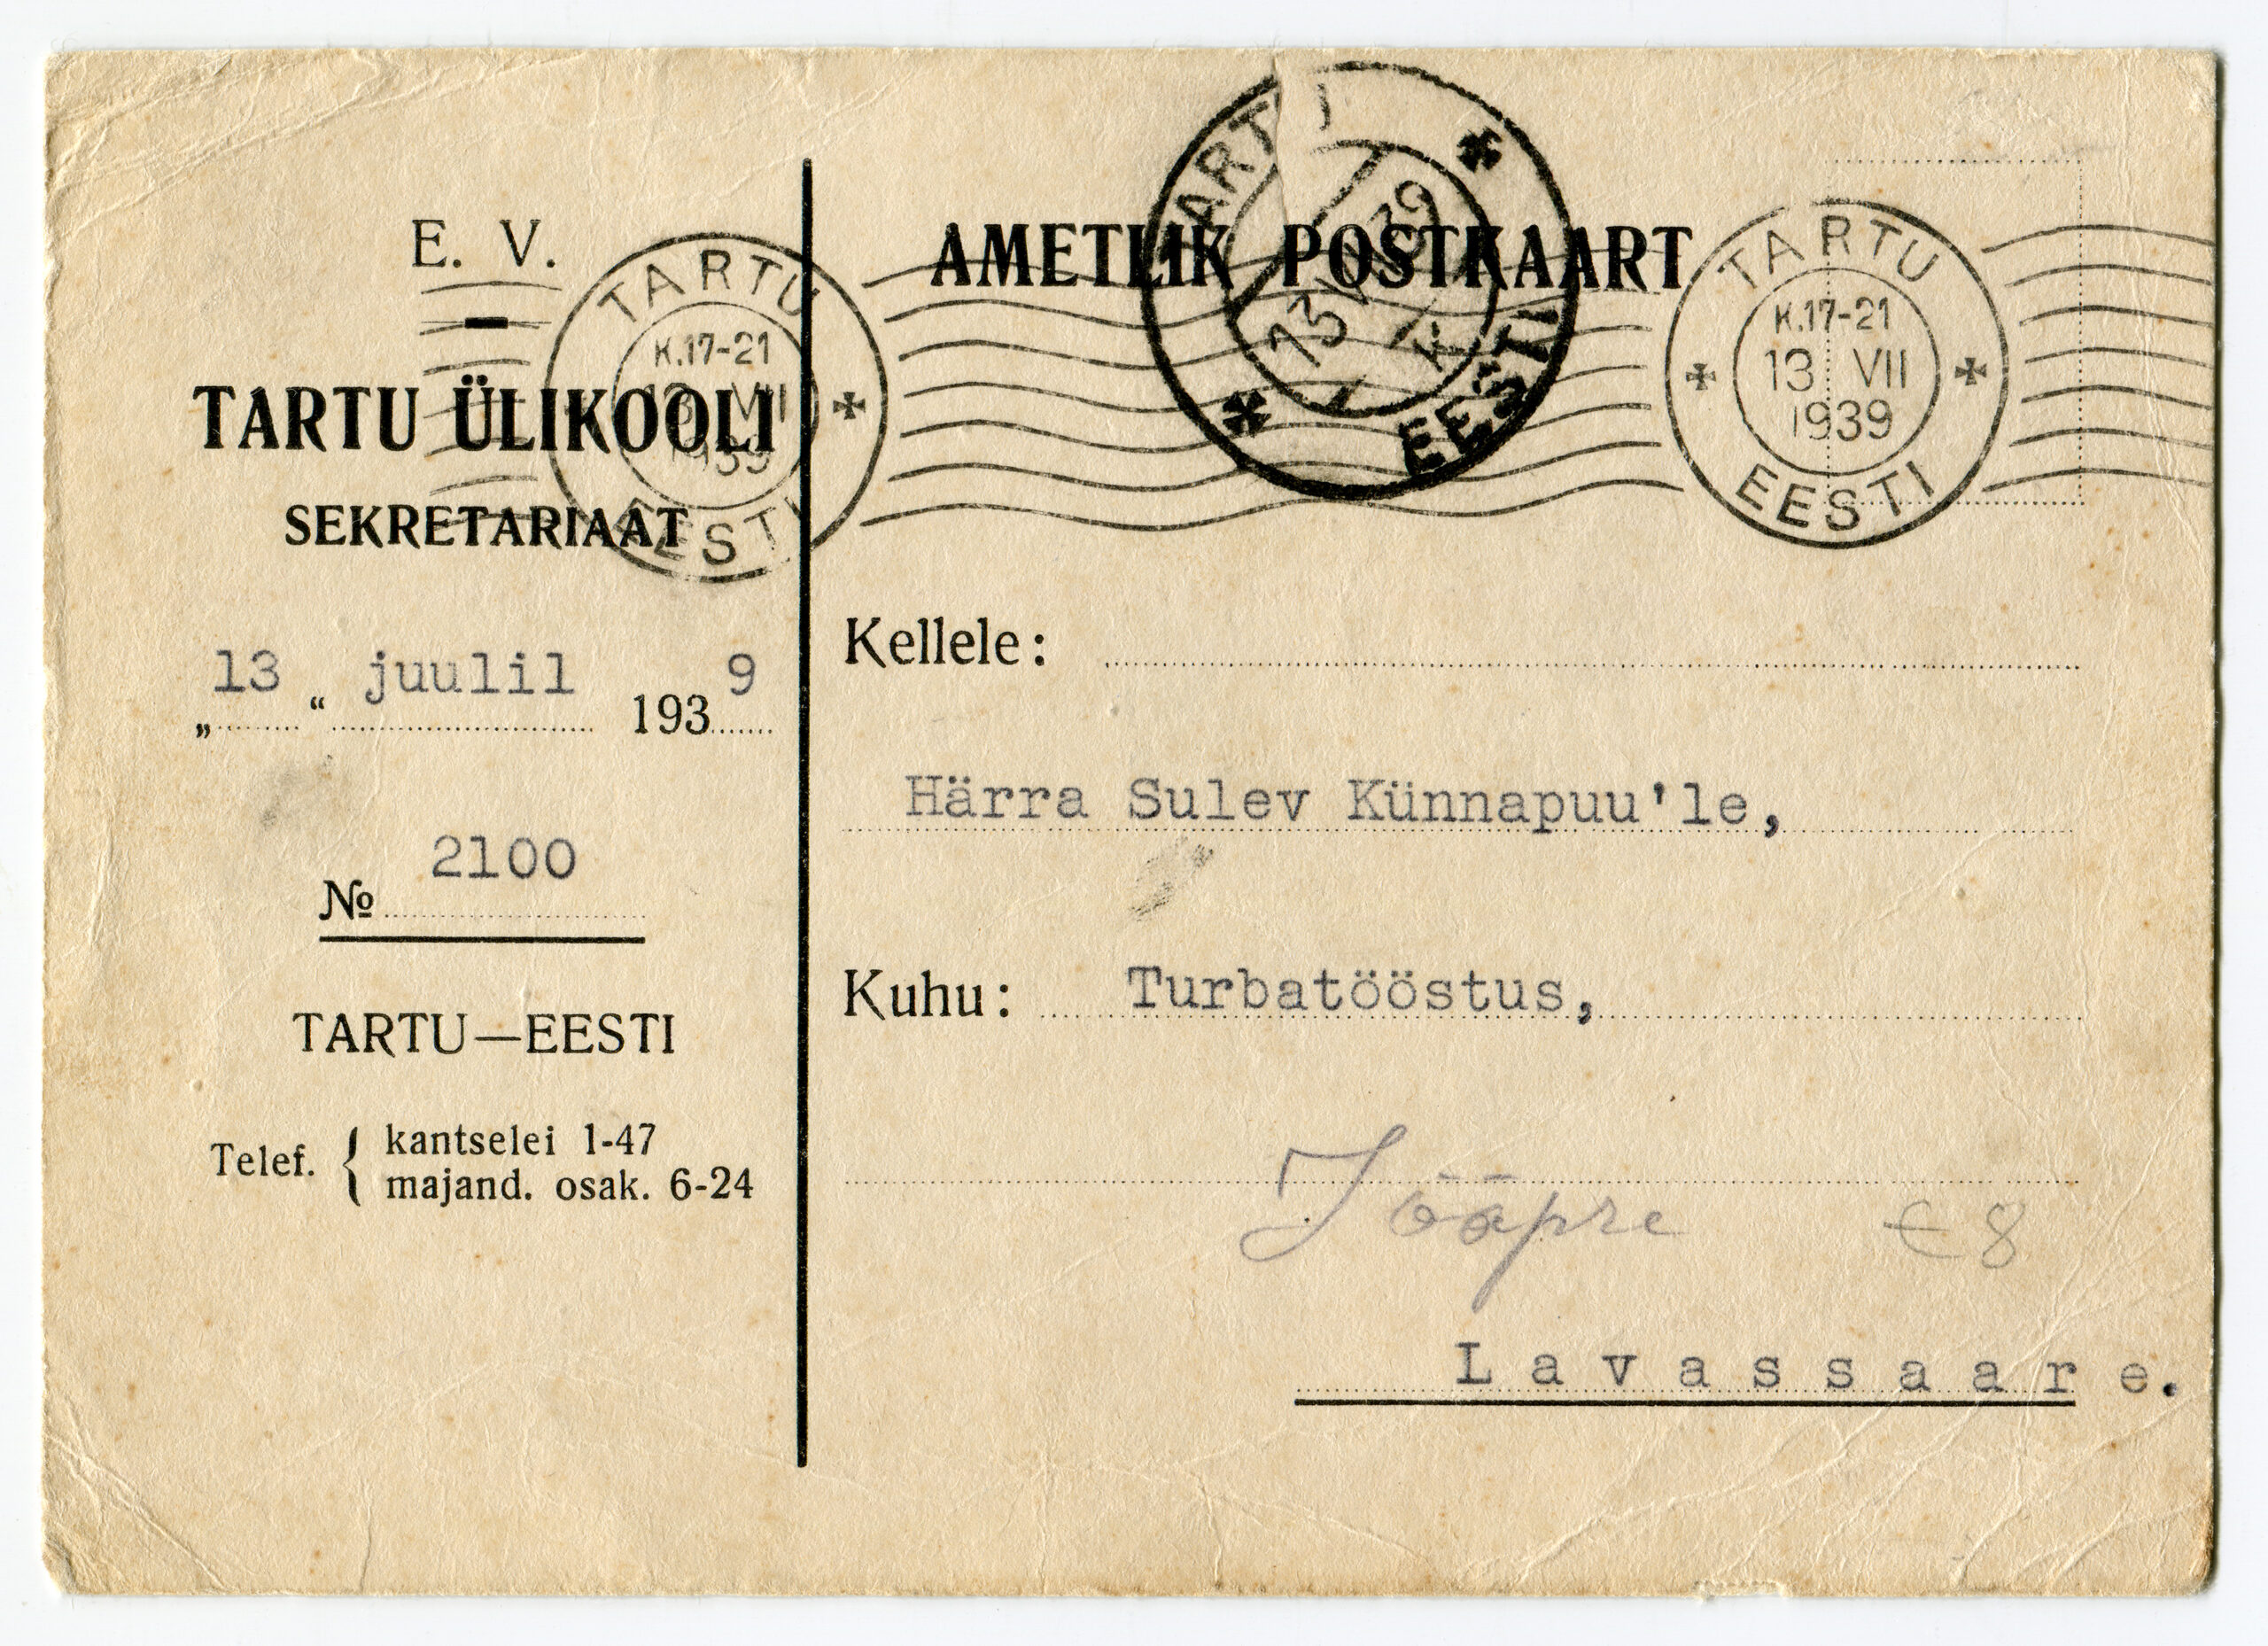 E. V.
TARTU ÜLIKOOLI
SEKRETARIAAT
„13“ juulil 1939
№ 2100
TARTU—EESTI
Telef. { kantselei 1-47
majand. osak. 6-24
AMETLIK POSTKAART
TARTU
K.17-21
13 VII
1939
EESTI
TARTU
13 VII 39
K
EESTI
TARTU
K.17-21
13 VII
1939
EESTI
Kellele:
Härra Sulev Künnapuu'le,
Kuhu: Turbatööstus,
Jõõpre €8
Lavassaare.